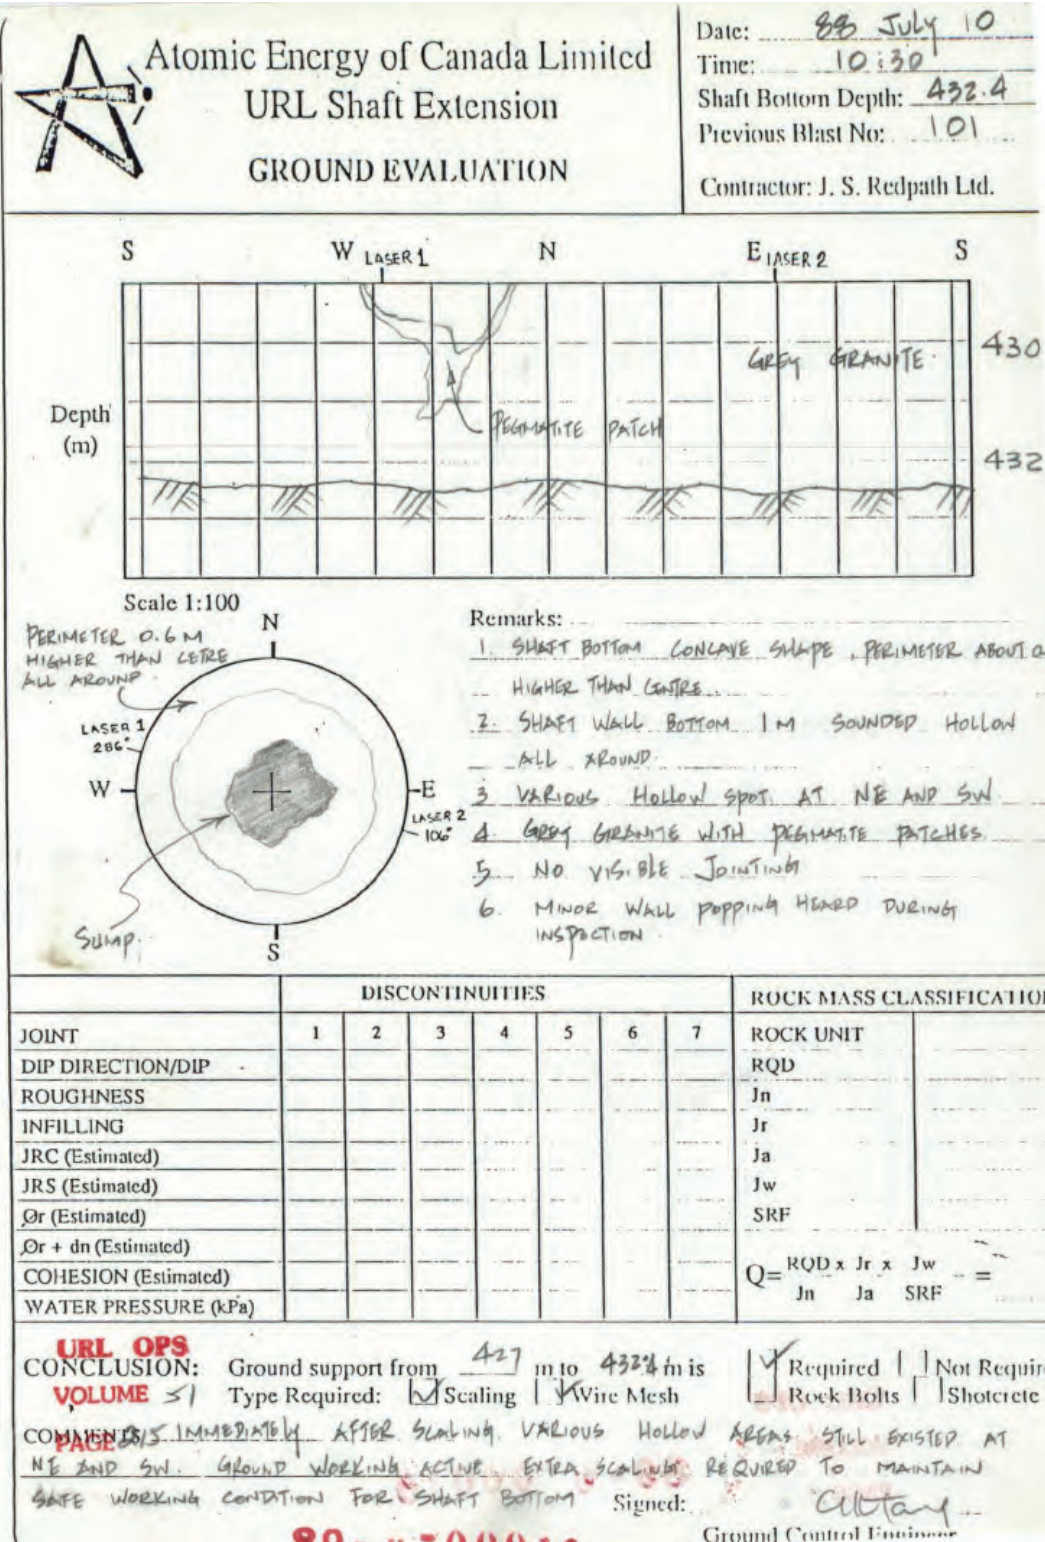 Atomic Energy of Canada Limited
URL Shaft Extension
GROUND EVALUATION
Date: 88 July 10
Time: 10:30
Shaft Bottom Depth: 432.4
Previous Blast No: 101
Contractor: J. S. Redpath Ltd.
S W LASER 1 N E LASER 2 S
430
GREY GRANITE
Depth
(m)
PEGMATITE PATCH
432
Scale 1:100
PERIMETER 0.6 M
HIGHER THAN CETRE
ALL AROUND.
N
LASER 1
286°
W
E
LASER 2
106°
S
SUMP.
Remarks:
1. SHAFT BOTTOM CONCAVE SHAPE, PERIMETER ABOUT
HIGHER THAN CENTRE
2. SHAFT WALL BOTTOM 1 M SOUNDED HOLLOW
ALL AROUND.
3 VARIOUS HOLLOW SPOT AT NE AND SW
4. GREY GRANITE WITH PEGMATITE PATCHES
5 NO VISIBLE JOINTING
6. MINOR WALL POPPING HEARD DURING
INSPECTION.
DISCONTINUITIES
ROCK MASS CLASSIFICATIO
JOINT 1 2 3 4 5 6 7
ROCK UNIT
DIP DIRECTION/DIP
RQD
ROUGHNESS
Jn
INFILLING
Jr
JRC (Estimated)
Ja
JRS (Estimated)
Jw
Ør (Estimated)
SRF
Ør + dn (Estimated)
COHESION (Estimated)
WATER PRESSURE (kPa)
Q= RQD x Jr x Jw =
Jn Ja SRF
URL OPS
CONCLUSION: Ground support from 427 m to 432.4 m is Required Not Requir
VOLUME 51
Type Required: Scaling Wire Mesh Rock Bolts Shotcrete
COMMENTS IMMEDIATELY AFTER SCALING. VARIOUS HOLLOW AREAS STILL EXISTED AT
PAGE
NE AND SW. GROUND WORKING ACTIVE EXTRA SCALING REQUIRED TO MAINTAIN
SAFE WORKING CONDITION FOR SHAFT BOTTOM
Signed:
Ground Control Engineer